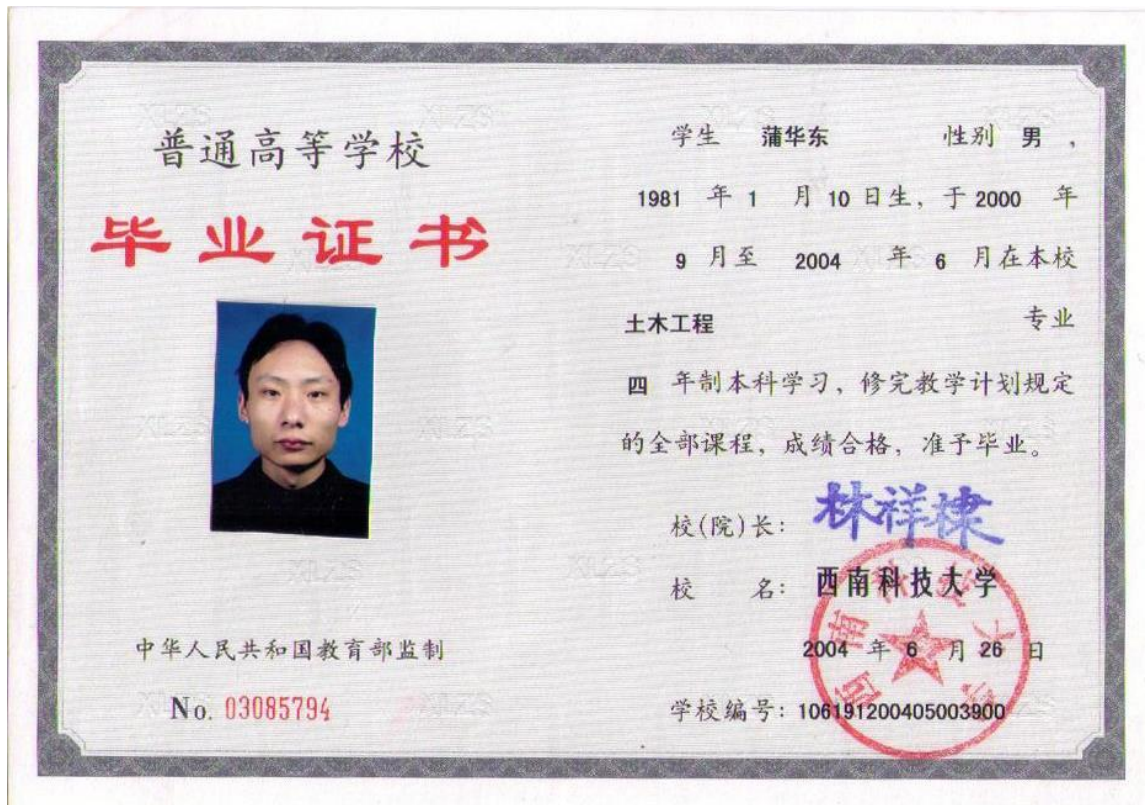 普通高等学校
毕业证书
中华人民共和国教育部监制
No. 03085794
学生 蒲华东 性别 男,
1981 年 1 月 10 日生, 于 2000 年
9 月至 2004 年 6 月在本校
土木工程 专业
四 年制本科学习, 修完教学计划规定
的全部课程, 成绩合格, 准予毕业。
校(院)长: 林祥棣
校 名: 西南科技大学
2004 年 6 月 26 日
学校编号: 106191200405003900
西南科技大学